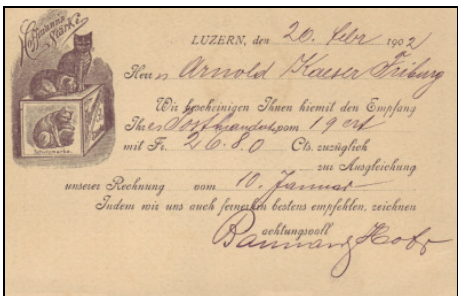 Hoffmann's
Stärke
LUZERN, den 20. febr 1902
Herrn Arnold Kaeser Friburg
Wir bescheinigen Ihnen hiemit den Empfang
Ihres Postmandat vom 19 crt
mit Fr. 26.80 Cts. zuzüglich
zur Ausgleichung
unserer Rechnung vom 10. Januar
Indem wir uns auch fernerhin bestens empfehlen, zeichnen
achtungsvoll
Schutzmarke.